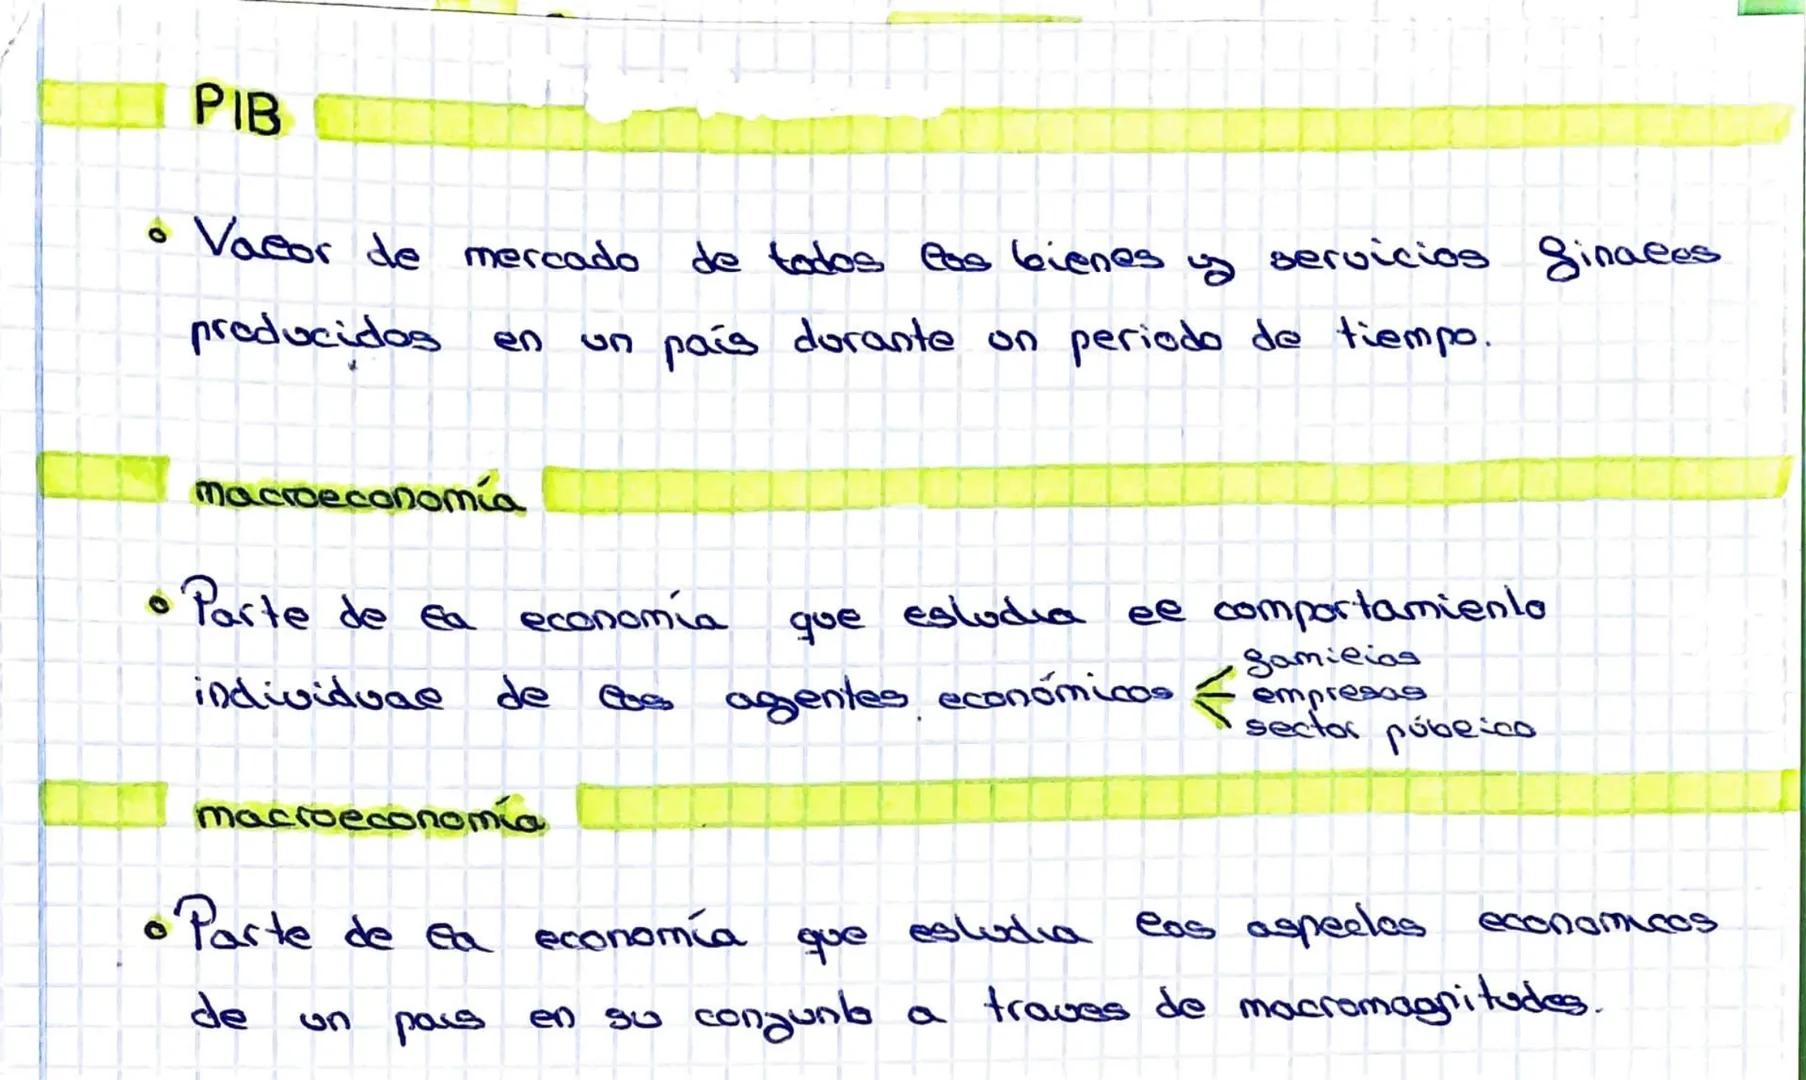 PIB
• Valor de mercado de todos los bienes y servicios finales
producidos en un país durante un periodo de tiempo.
macroeconomía
• Parte de la economía que estudia el comportamiento
individual de los agentes económicos < familias
empresas
sector público
macroeconomía
• Parte de la economía que estudia los aspectos economicos
de un pais en su conjunto a traves de macromagnitudes.